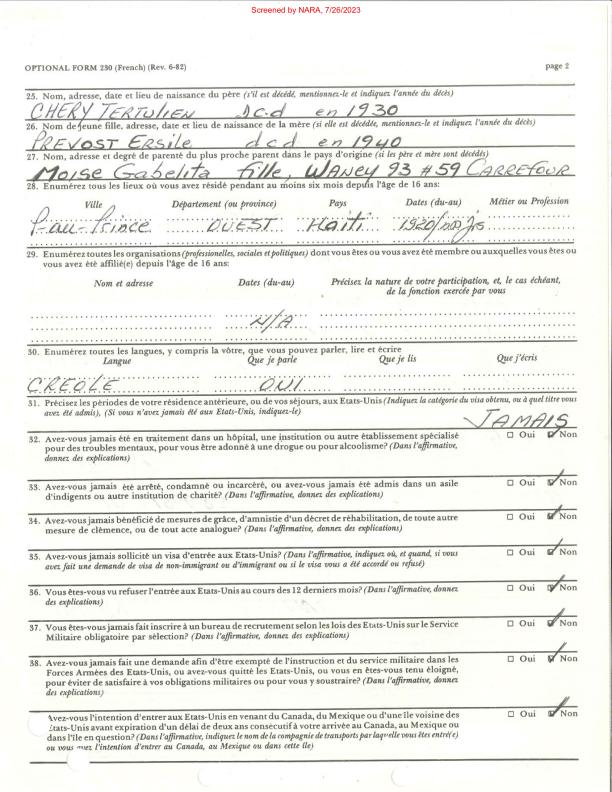 Screened by NARA, 7/26/2023
OPTIONAL FORM 230 (French) (Rev. 6-82) page 2
25. Nom, adresse, date et lieu de naissance du père (s'il est décédé, mentionnez-le et indiquez l'année du décès)
CHERY TERTULIEN dcd en 1930
26. Nom de jeune fille, adresse, date et lieu de naissance de la mère (si elle est décédée, mentionnez-le et indiquez l'année du décès)
PREVOST ERSILE dcd en 1940
27. Nom, adresse et degré de parenté du plus proche parent dans le pays d'origine (si les père et mère sont décédés)
MOISE Gabelita fille, WANEY 93 #59 CARREFOUR
28. Enumérez tous les lieux où vous avez résidé pendant au moins six mois depuis l'âge de 16 ans:
Ville Département (ou province) Pays Dates (du-au) Métier ou Profession
P-au-Prince OUEST Haiti 1920/
29. Enumérez toutes les organisations (professionelles, sociales et politiques) dont vous êtes ou vous avez été membre ou auxquelles vous êtes ou
vous avez été affilié(e) depuis l'âge de 16 ans:
Nom et adresse Dates (du-au) Précisez la nature de votre participation, et, le cas échéant,
de la fonction exercée par vous
N/A
30. Enumérez toutes les langues, y compris la vôtre, que vous pouvez parler, lire et écrire
Langue Que je parle Que je lis Que j'écris
CREOLE OUI
31. Précisez les périodes de votre résidence antérieure, ou de vos séjours, aux Etats-Unis (Indiquez la catégorie du visa obtenu, ou à quel titre vous
avez été admis), (Si vous n'avez jamais été aux Etats-Unis, indiquez-le)
JAMAIS
32. Avez-vous jamais été en traitement dans un hôpital, une institution ou autre établissement spécialisé Oui Non
pour des troubles mentaux, pour vous être adonné à une drogue ou pour alcoolisme? (Dans l'affirmative,
donnez des explications)
33. Avez-vous jamais été arrêté, condamné ou incarcéré, ou avez-vous jamais été admis dans un asile Oui Non
d'indigents ou autre institution de charité? (Dans l'affirmative, donnez des explications)
34. Avez-vous jamais bénéficié de mesures de grâce, d'amnistie d'un décret de réhabilitation, de toute autre Oui Non
mesure de clémence, ou de tout acte analogue? (Dans l'affirmative, donnez des explications)
35. Avez-vous jamais sollicité un visa d'entrée aux Etats-Unis? (Dans l'affirmative, indiquez où, et quand, si vous Oui Non
avez fait une demande de visa de non-immigrant ou d'immigrant ou si le visa vous a été accordé ou refusé)
36. Vous êtes-vous vu refuser l'entrée aux Etats-Unis au cours des 12 derniers mois? (Dans l'affirmative, donnez Oui Non
des explications)
37. Vous êtes-vous jamais fait inscrire à un bureau de recrutement selon les lois des Etats-Unis sur le Service Oui Non
Militaire obligatoire par sélection? (Dans l'affirmative, donnez des explications)
38. Avez-vous jamais fait une demande afin d'être exempté de l'instruction et du service militaire dans les Oui Non
Forces Armées des Etats-Unis, ou avez-vous quitté les Etats-Unis, ou vous en êtes-vous tenu éloigné,
pour éviter de satisfaire à vos obligations militaires ou pour vous y soustraire? (Dans l'affirmative, donnez
des explications)
Avez-vous l'intention d'entrer aux Etats-Unis en venant du Canada, du Mexique ou d'une île voisine des Oui Non
Etats-Unis avant expiration d'un délai de deux ans consécutif à votre arrivée au Canada, au Mexique ou
dans l'île en question? (Dans l'affirmative, indiquez le nom de la compagnie de transports par laquelle vous êtes entré(e)
ou vous avez l'intention d'entrer au Canada, au Mexique ou dans cette île)